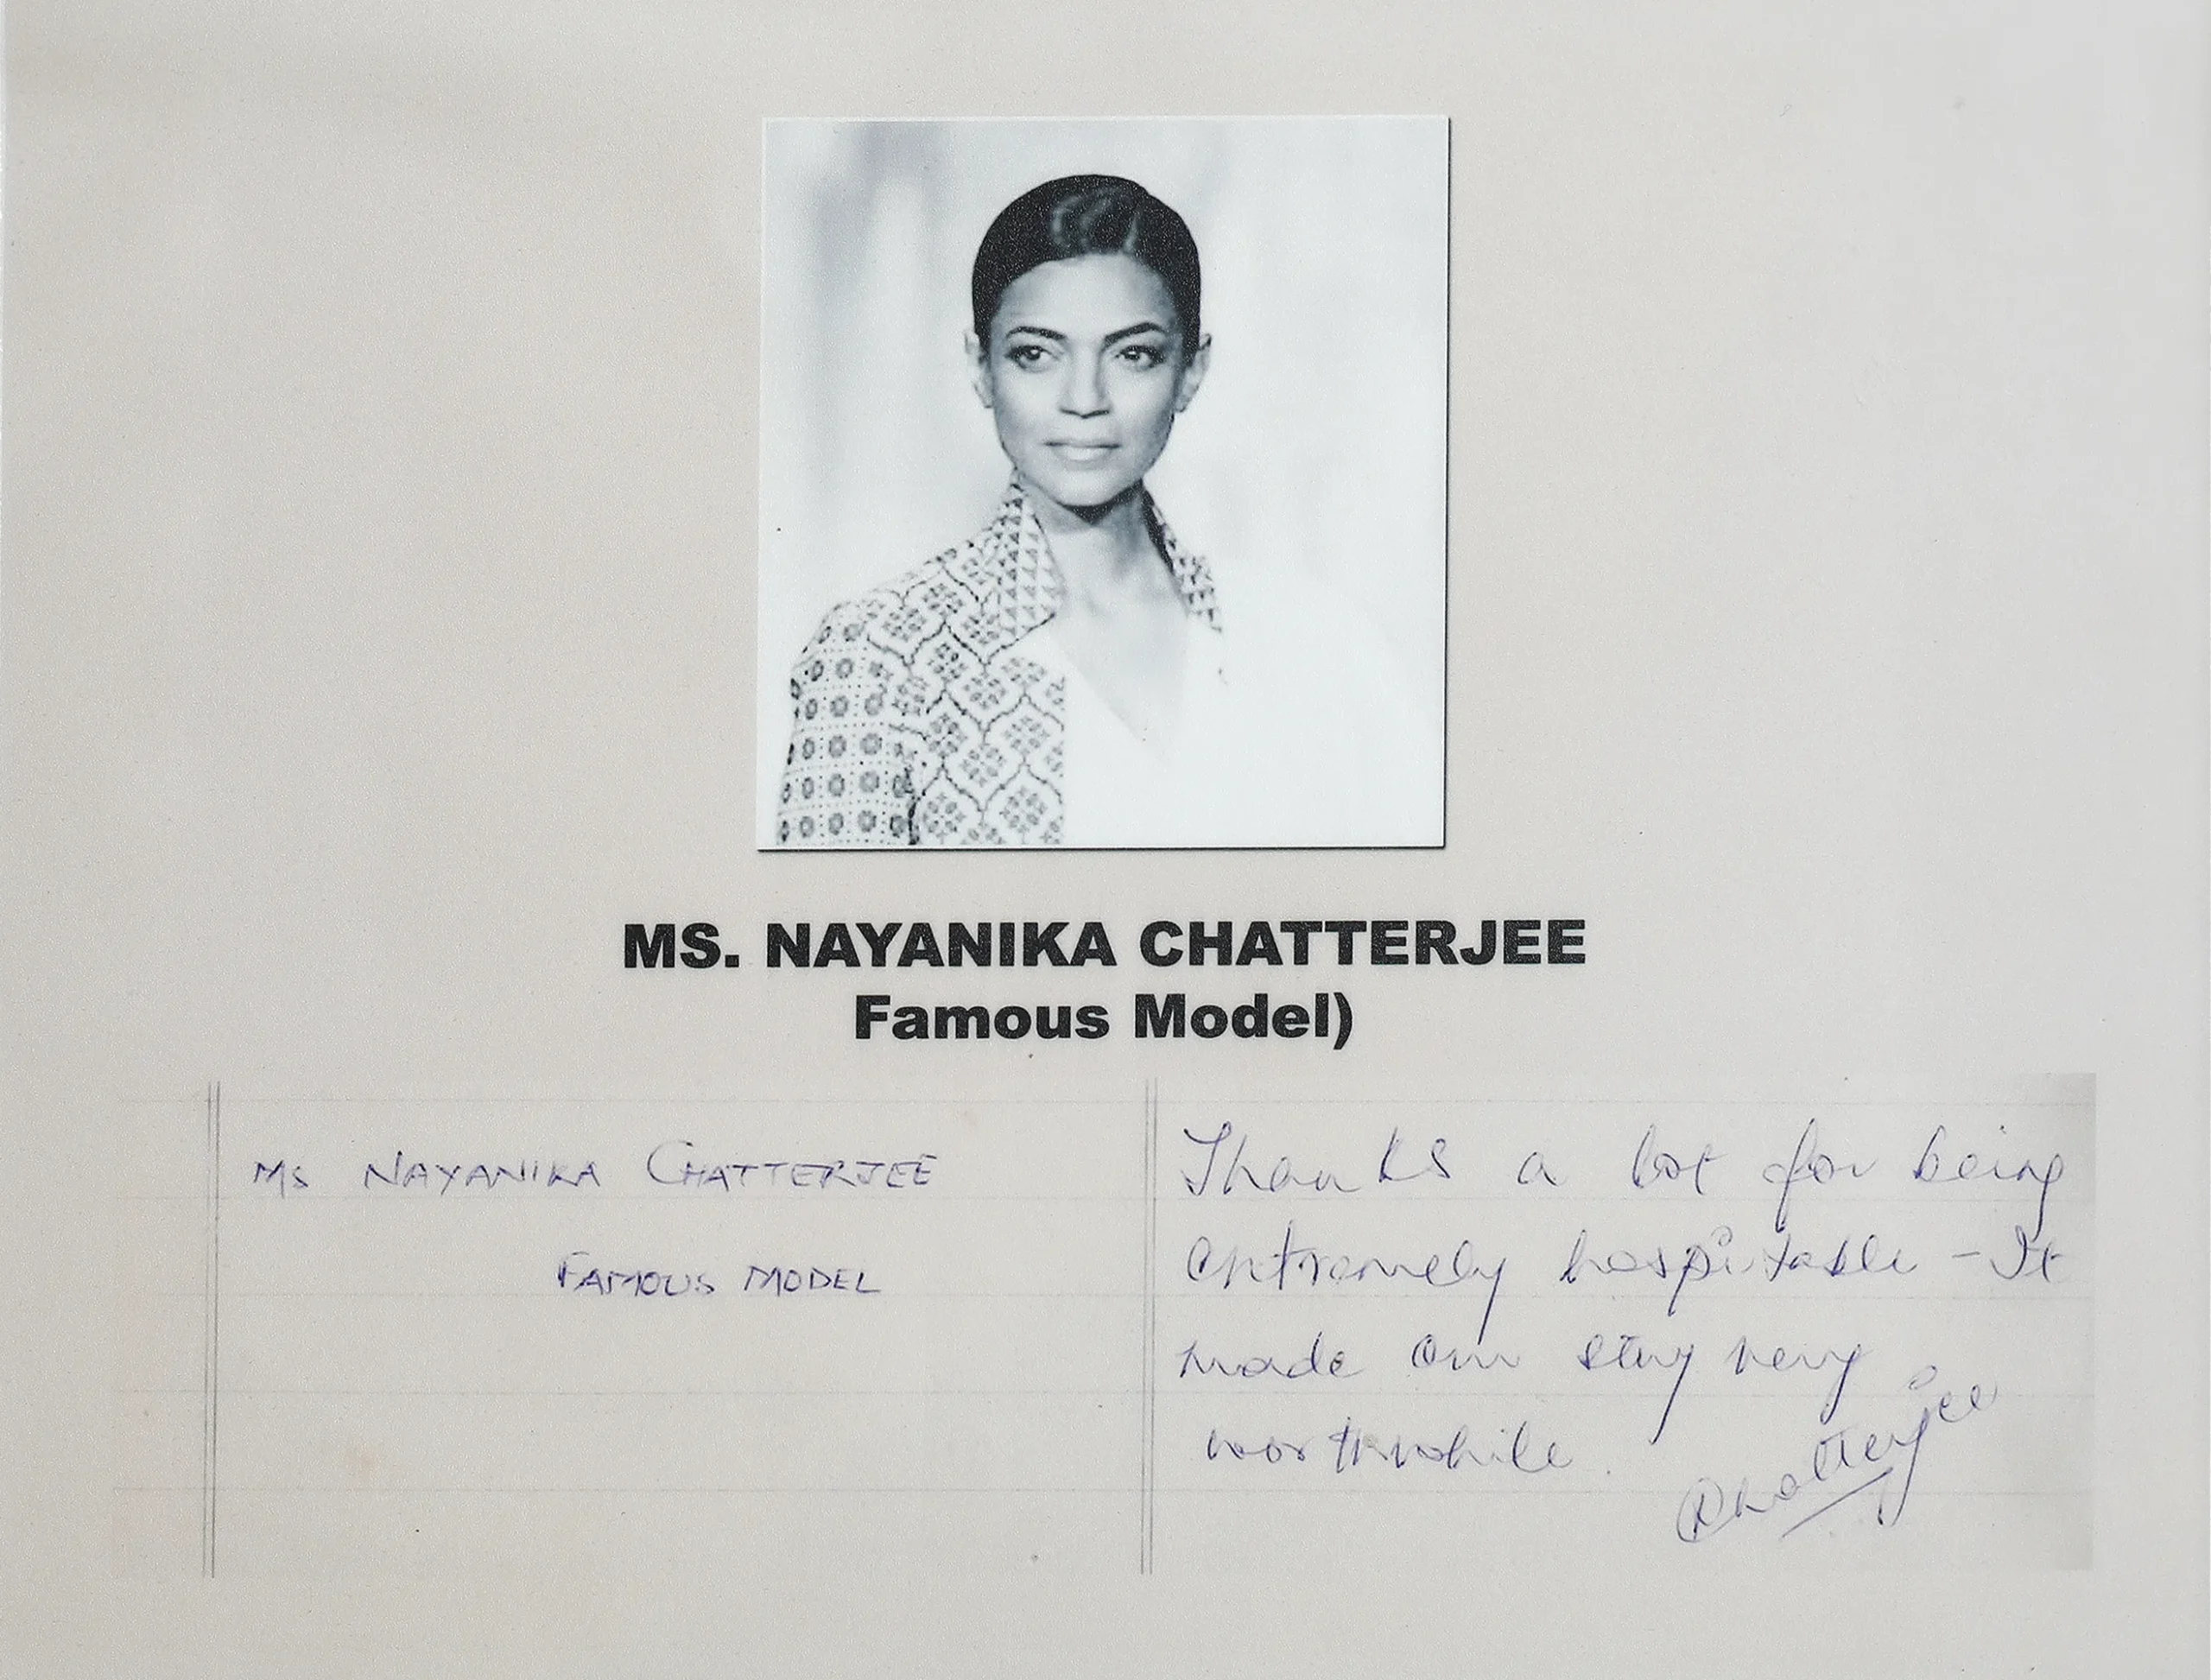 MS. NAYANIKA CHATTERJEE
Famous Model)
Ms NAYANIKA CHATTERJEE
FAMOUS MODEL
Thanks a lot for being
extremely hospitable - It
made our stay very
worthwhile.
Chatterjee